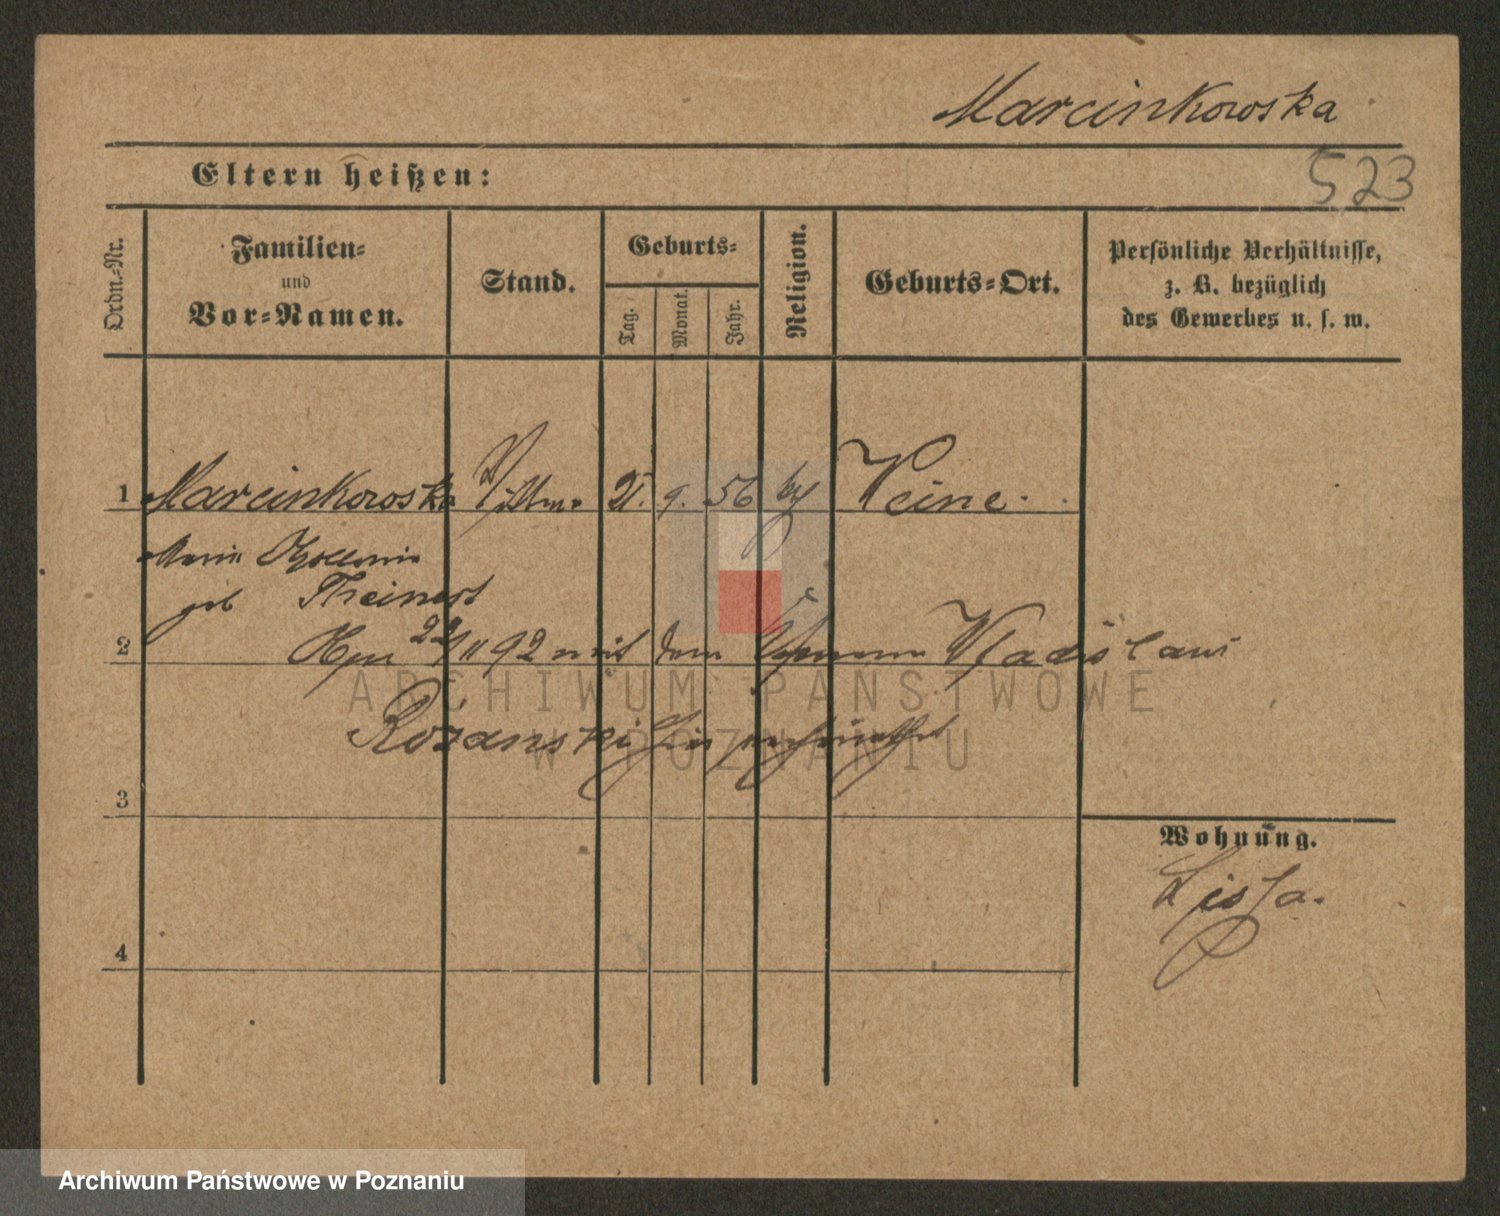 Marcinkowska
Eltern heißen:
523
Ordn.-Nr.
Familien-
und
Vor-Namen.
Stand.
Geburts-
Tag.
Monat.
Jahr.
Religion.
Geburts-Ort.
Persönliche Verhältnisse,
z. B. bezüglich
des Gewerbes u. s. w.
1 Marcinkowska 21. 9. 56 Weine
Marie
geb Theinert
2 22/11 92 mit dem Wladislaus
Rozanski hier verheirathet
3
Wohnung.
Lissa.
4
ARCHIWUM PAŃSTWOWE
W POZNANIU
Archiwum Państwowe w Poznaniu